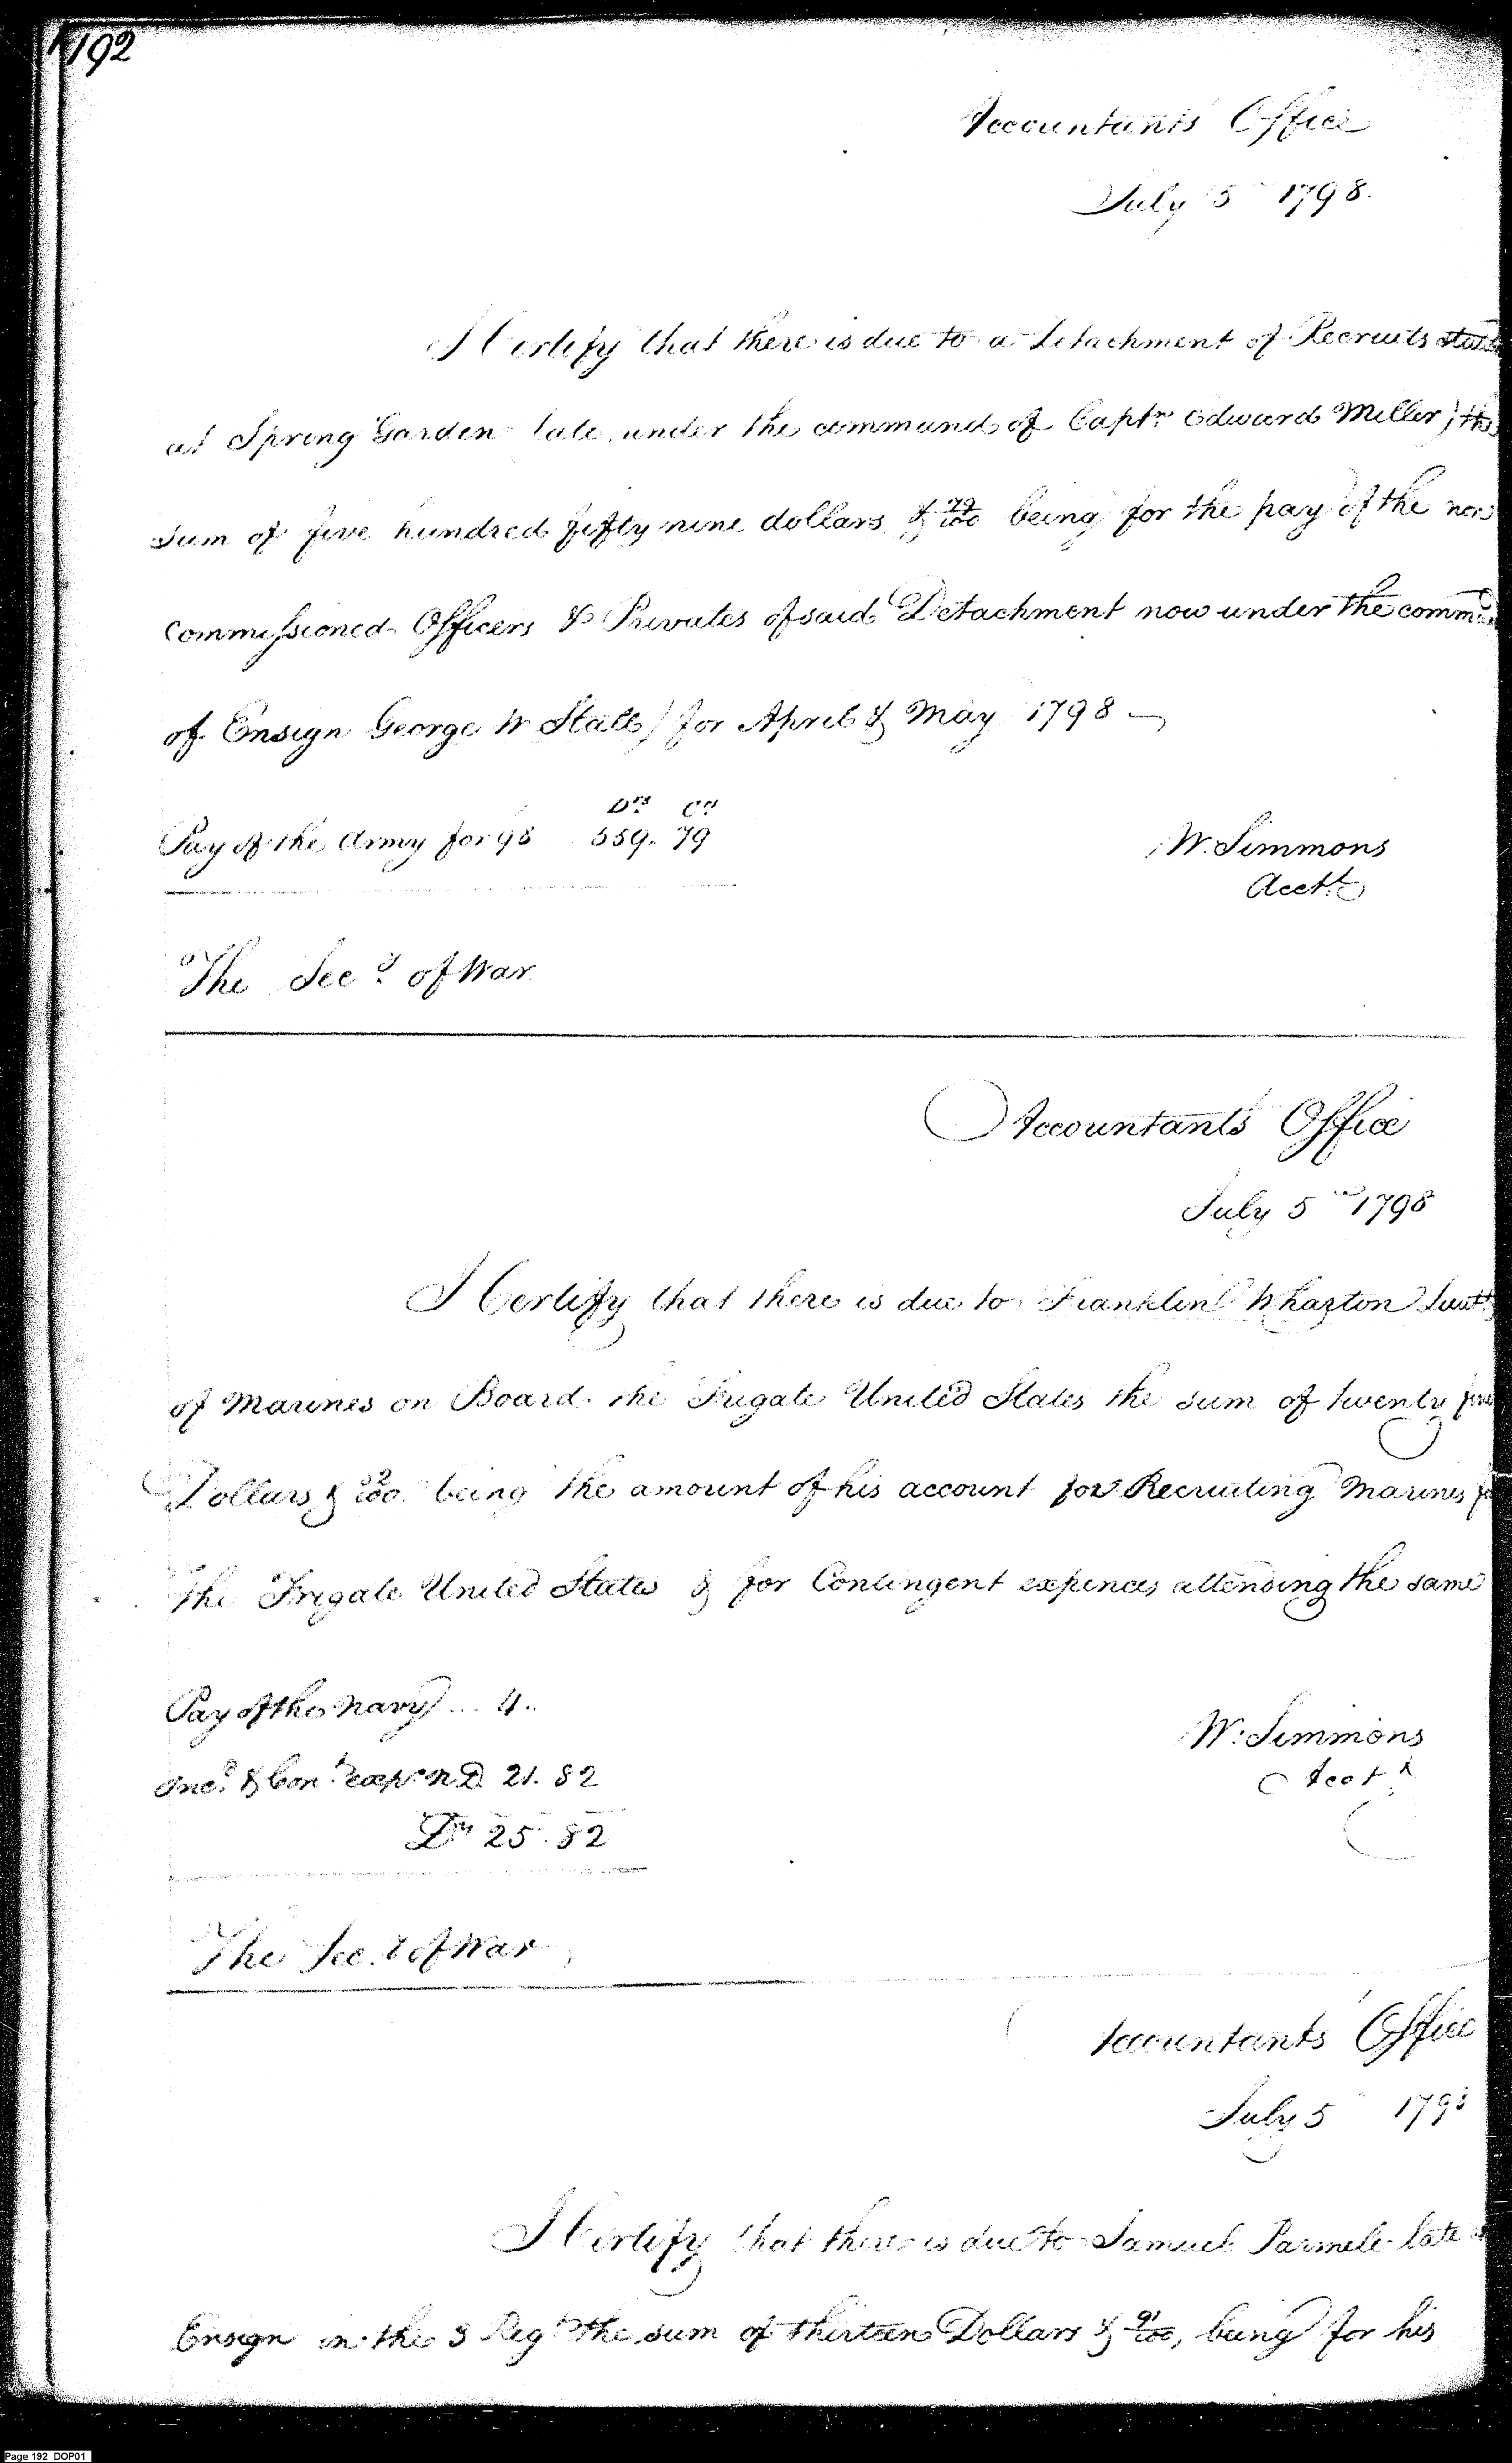 192
Accountants Office
July 5 1798.
I Certify that there is due to a Detachment of Recruits
at Spring Garden late under the command of Captn Edward Miller) the
sum of five hundred fifty nine dollars & 79/100 being for the pay of the non
Commissioned Officers & Privates of said Detachment now under the comm
of Ensign George W Stall) for April & May 1798
Drs Cts
Pay of the Army for 98 559. 79
W. Simmons
Acctt
The Secy of War
Accountants Office
July 5 1798
I Certify that there is due to Franklin Wharton Lieutt
of Marines on Board the Frigate United States the sum of twenty five
Dollars & 82/100 being the amount of his account for Recruiting Marines
the Frigate United States & for Contingent expences attending the same
Pay of the Navy ... 4..
& Cont expe N.D. 21. 82
Drs 25. 82
W. Simmons
Acctt
The Secy of War
Accountants Office
July 5 1798
I Certify that there is due to Samuel Parmele late
Ensign in the 3 Regt the sum of thirteen Dollars & 91/100, being for his
Page 192 DOP01